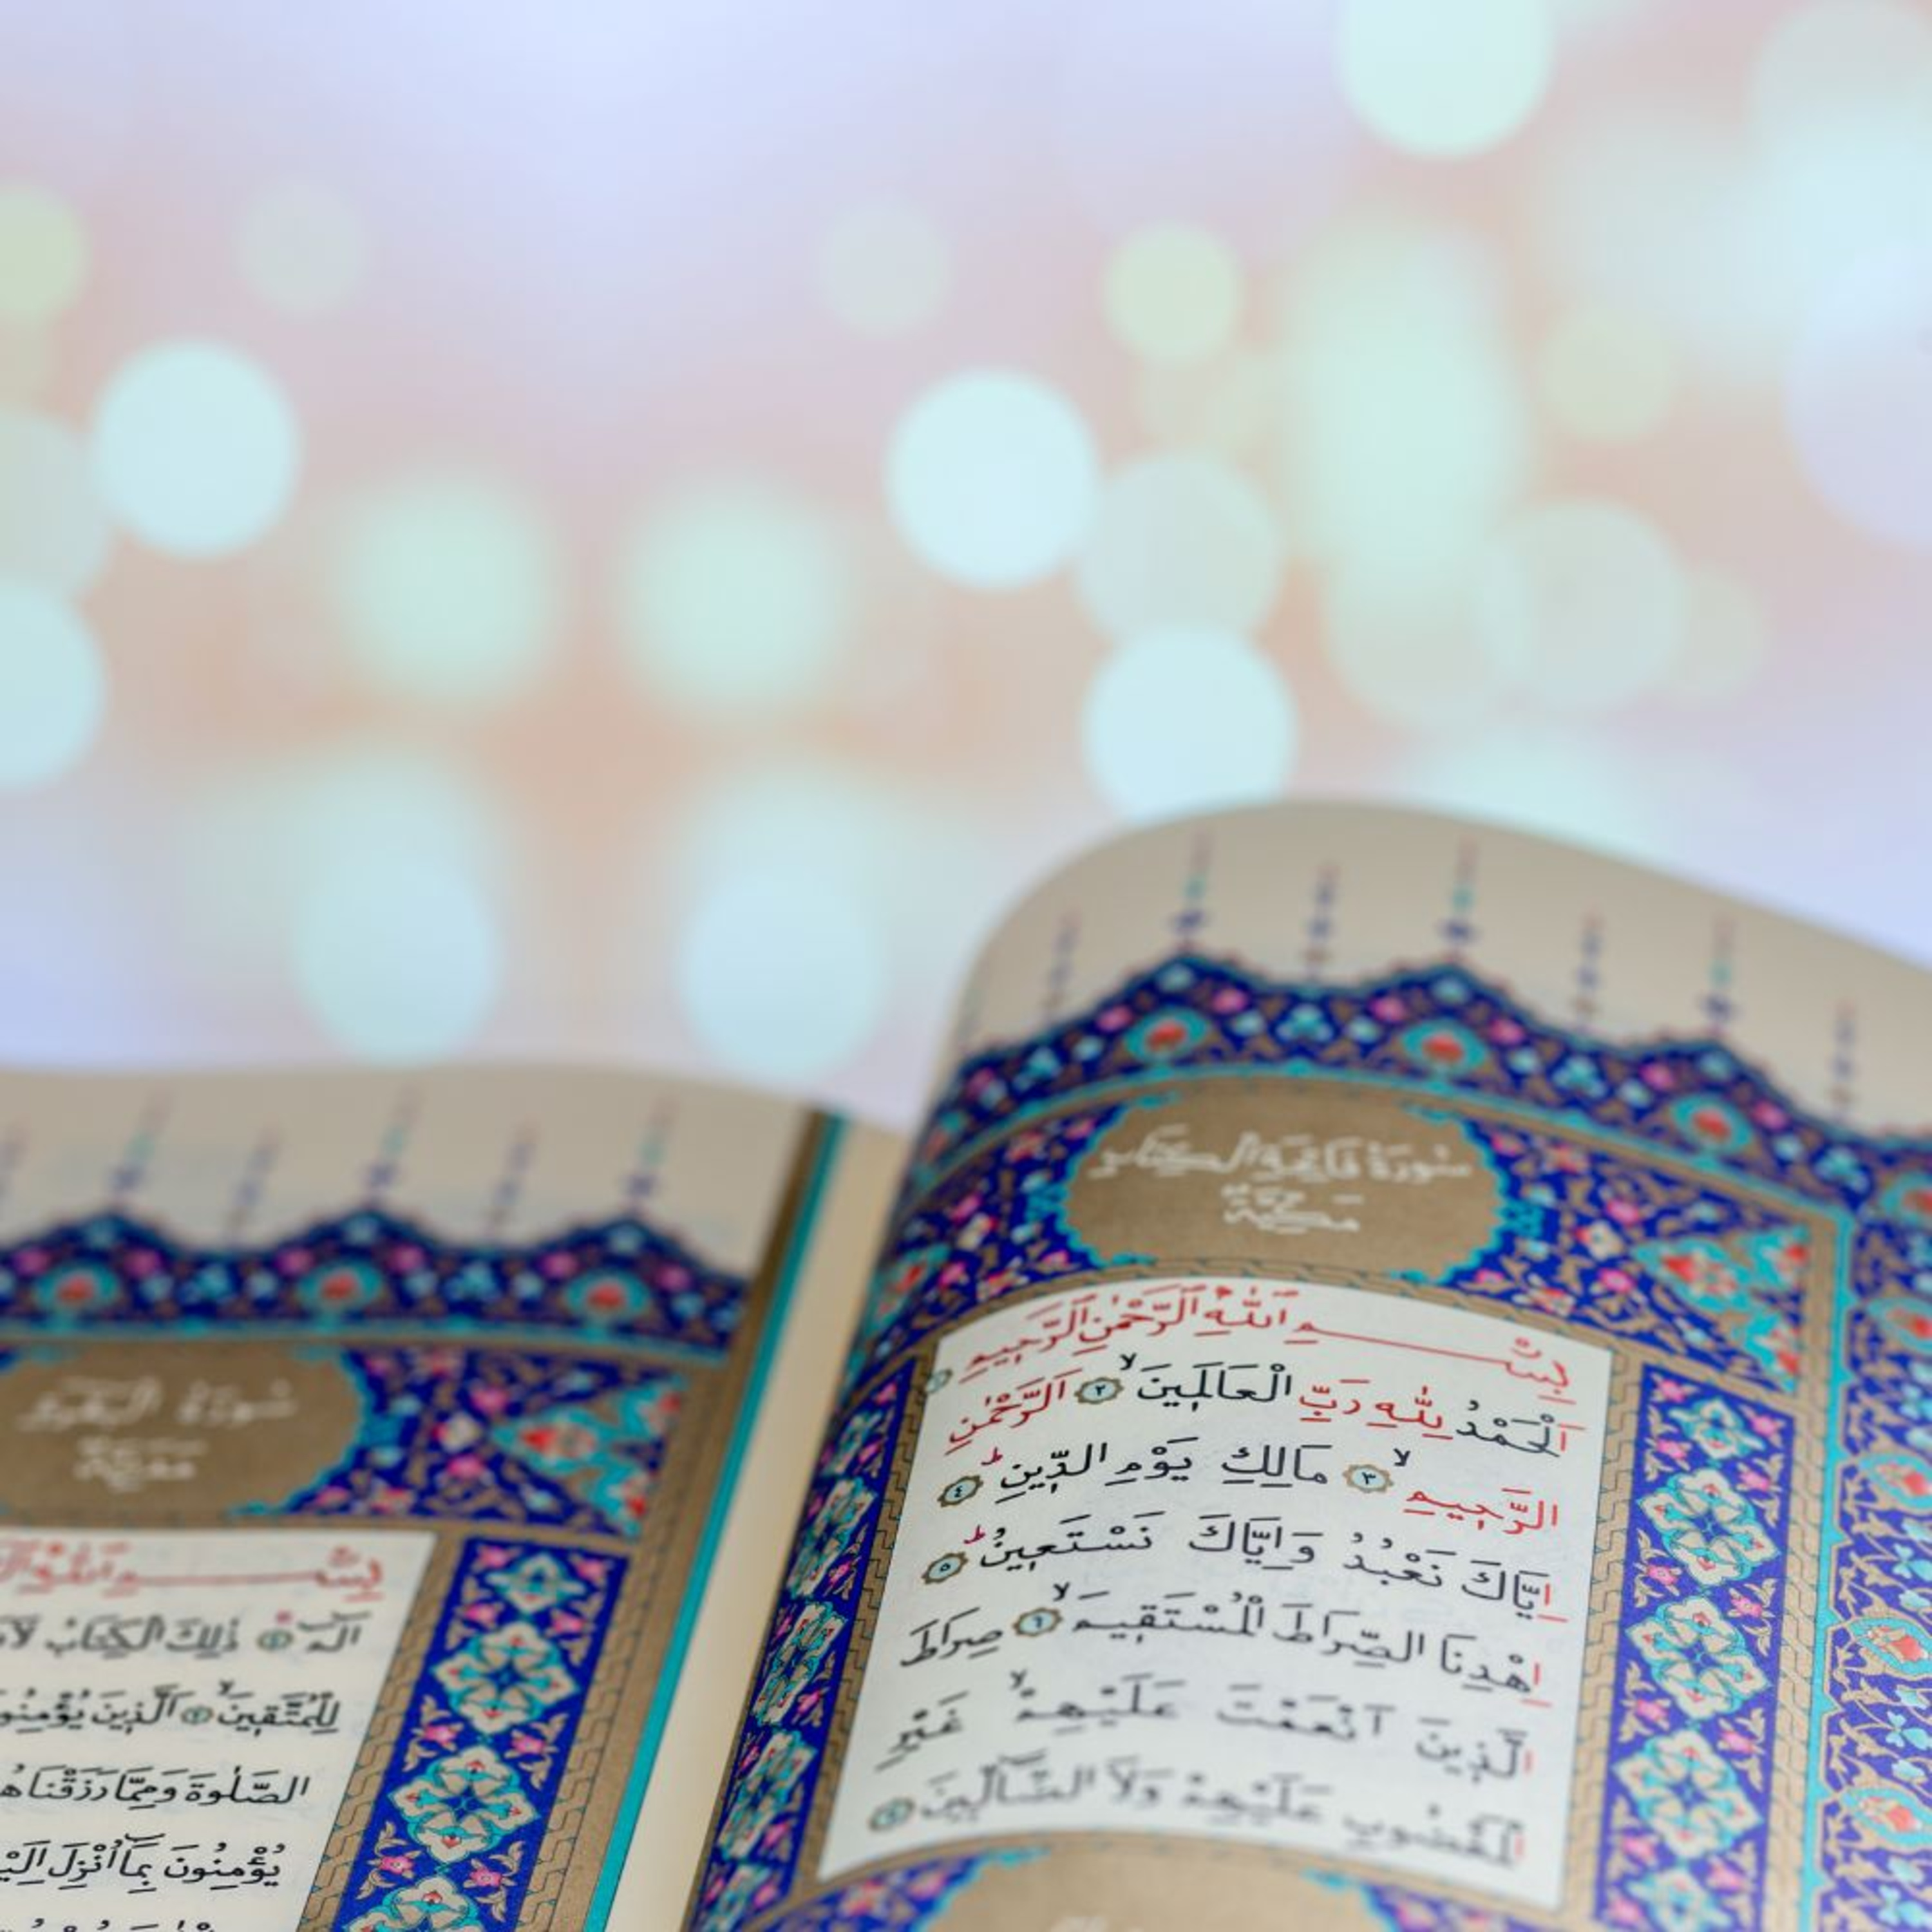 سُورَةُ فَاتِحَةِ الْكِتَابِ
مَكِّيَّةٌ
بِسْمِ اللّٰهِ الرَّحْمٰنِ الرَّحِيمِ
اَلْحَمْدُ لِلّٰهِ رَبِّ الْعَالَمِينَ ۙ ٢ اَلرَّحْمٰنِ
الرَّحِيمِ ۙ ٣ مَالِكِ يَوْمِ الدِّينِ ۜ ٤
اِيَّاكَ نَعْبُدُ وَاِيَّاكَ نَسْتَعِينُ ۜ ٥
اِهْدِنَا الصِّرَاطَ الْمُسْتَقِيمَ ۙ ٦ صِرَاطَ
الَّذِينَ اَنْعَمْتَ عَلَيْهِمْ ۙ غَيْرِ
الْمَغْضُوبِ عَلَيْهِمْ وَلَا الضَّالِّينَ
سُورَةُ الْبَقَرَةِ
مَدَنِيَّةٌ
بِسْمِ اللّٰهِ
الٓمٓ ذٰلِكَ الْكِتَابُ
لِلْمُتَّقِينَ ۙ ٢ اَلَّذِينَ
الصَّلٰوةَ وَمِمَّا
يُؤْمِنُونَ بِمَٓا اُنْزِلَ